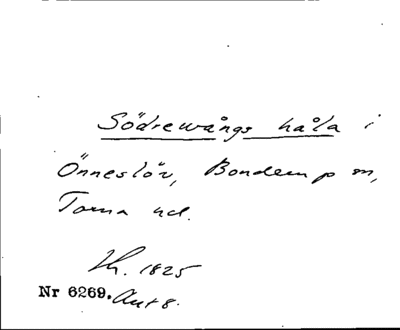 Södrewångs håla i
Önneslöv, Bonderup sn,
Torna hd.
Lh. 1825
Nr 6269. Akt 8.